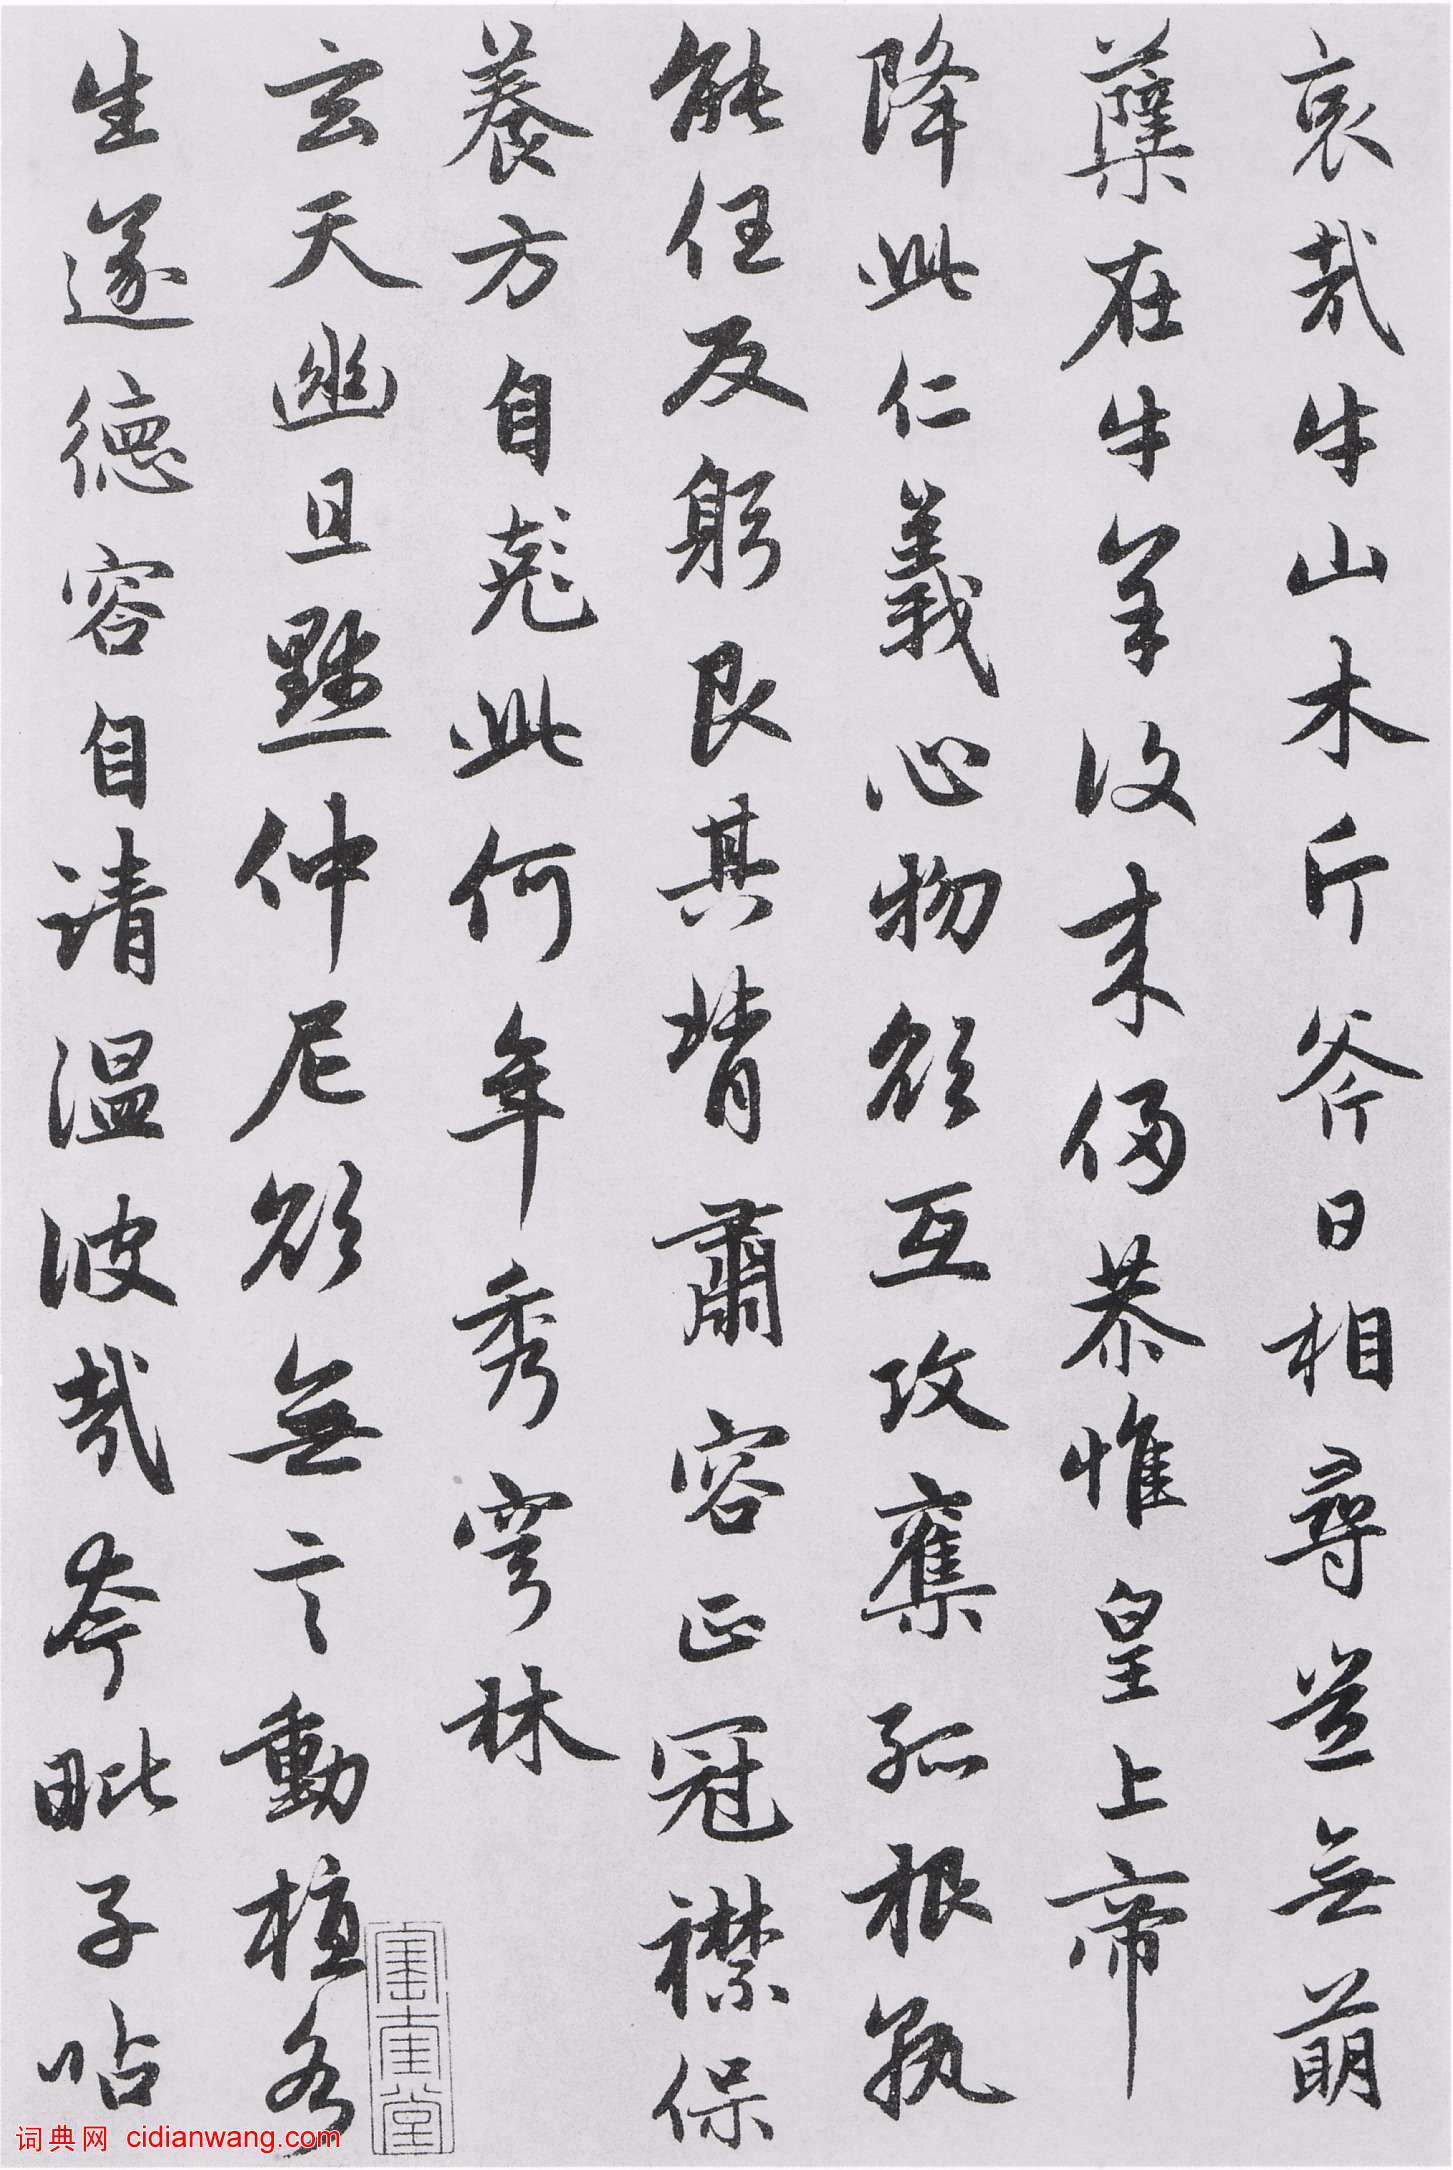 哀哉牛山木斤斧日相尋豈無萌
蘖在牛羊復來侵恭惟皇上帝
降此仁義心物欲互攻奪孤根孰
能任反躬艮其背肅容正冠襟保
養方自茲此何年秀穹林
玄天幽且默仲尼欲無言動植各
生遂德容自清溫彼哉夸毗子呫
詞典网 cidianwang.com